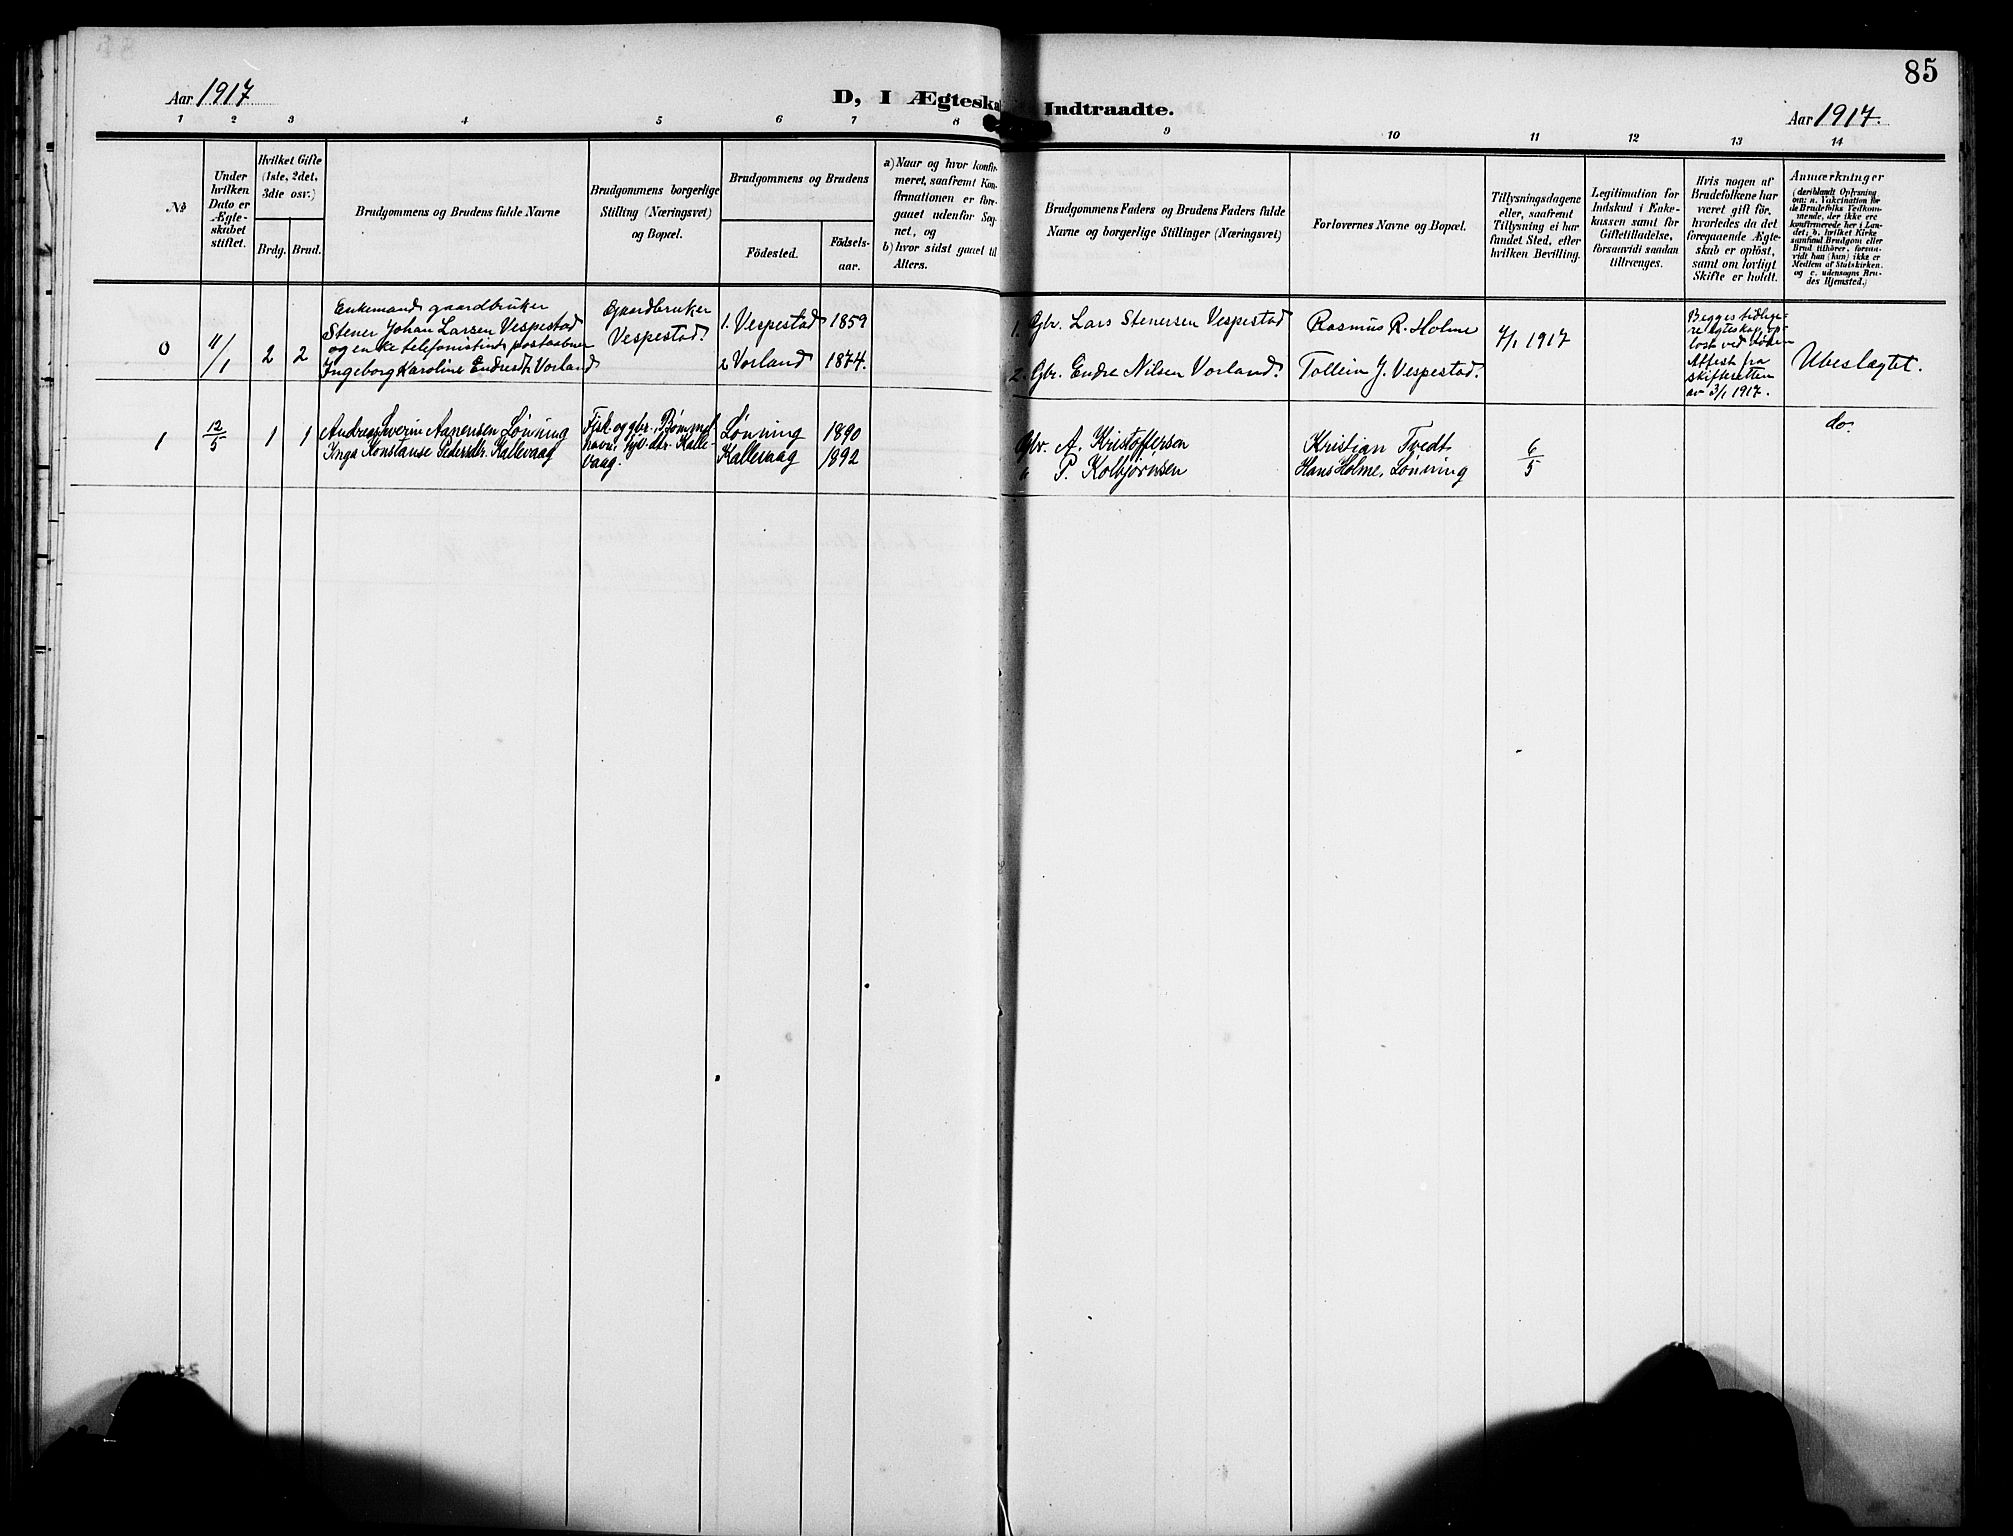 85
Aar 1917
D, I Ægteska
Indtraadte.
Aar 1917.
1 2 3 4 5 6 7 8 9 10 11 12 13 14
№
Under
hvilken
Dato er
Ægte-
skabet
stiftet.
Hvilket Gifte
(1ste, 2det,
3die osv.)
Brdg. Brud.
Brudgommens og Brudens fulde Navne
Brudgommens borgerlige
Stilling (Næringsvei)
og Bopæl.
Brudgommens og Brudens
Födested.
Födsels-
aar.
a) Naar og hvor konfir-
meret, saafremt Kon-
firmationen er fore-
gaaet udenfor Sog-
net, og
b) hvor sidst gaaet til
Alters.
Brudgommens Faders og Brudens Faders fulde
Navne og borgerlige Stillinger (Næringsvei)
Forlovernes Navne og Bopæl.
Tillysningsdagene
eller, saafremt
Tillysning ei har
fundet Sted, efter
hvilken Bevilling.
Legitimation for
Indskud i Enke-
kassen samt for
Giftetilladelse,
forsaavidt saadan
tiltrænges.
Hvis nogen af
Brudefolkene har
været gift för,
hvorledes da det
foregaaende Ægte-
skab er oplöst,
samt om lovligt
Skifte er holdt.
Anmærkninger
(deriblandt Oplysning
om: a. Vakcination for
de Brudefolks Vedkom-
mende, der ikke ere
konfirmerede her i Lan-
det; b. hvilket Kirke-
samfund Brudgom eller
Brud tilhörer, forsaa-
vidt han (hun) ikke er
Medlem af Statskirken.
og c. udensogns Bru-
des Hjemsted.)
0
11/1
2 2
Enkemand gaardbruker
Stener Johan Larsen Vespestad
og enke telefonistinde postaabner
Ingeborg Karoline Endresdtr Vorland
Gaardbruker
Vespestad.
1. Vespestad 1859
2 Vorland 1874.
1. Gbr. Lars Stenersen Vespestad
2. Gbr. Endre Nilsen Vorland.
Rasmus R. Holme
Tollein J. Vespestad.
7/1 1917
Begges tidlige-
re egteskap op-
løst ved døden
Attest fra
skifteretten
av 3/1 1917.
Ubeslægtet.
1
12/5
1 1
Andreas Severin Aanensen Lønning
Inga Konstanse Pedersdtr. Kallevaag
Fisk. og gbr. Bømmel
havn, gbr. dtr. Kalle
vaag.
Lønning 1890
Kallevaag 1892
Gbr. A. Kristoffersen
" P. Kolbjørnsen
Kristian Tvedt
Hans Holme, Lønning
6/5
do.